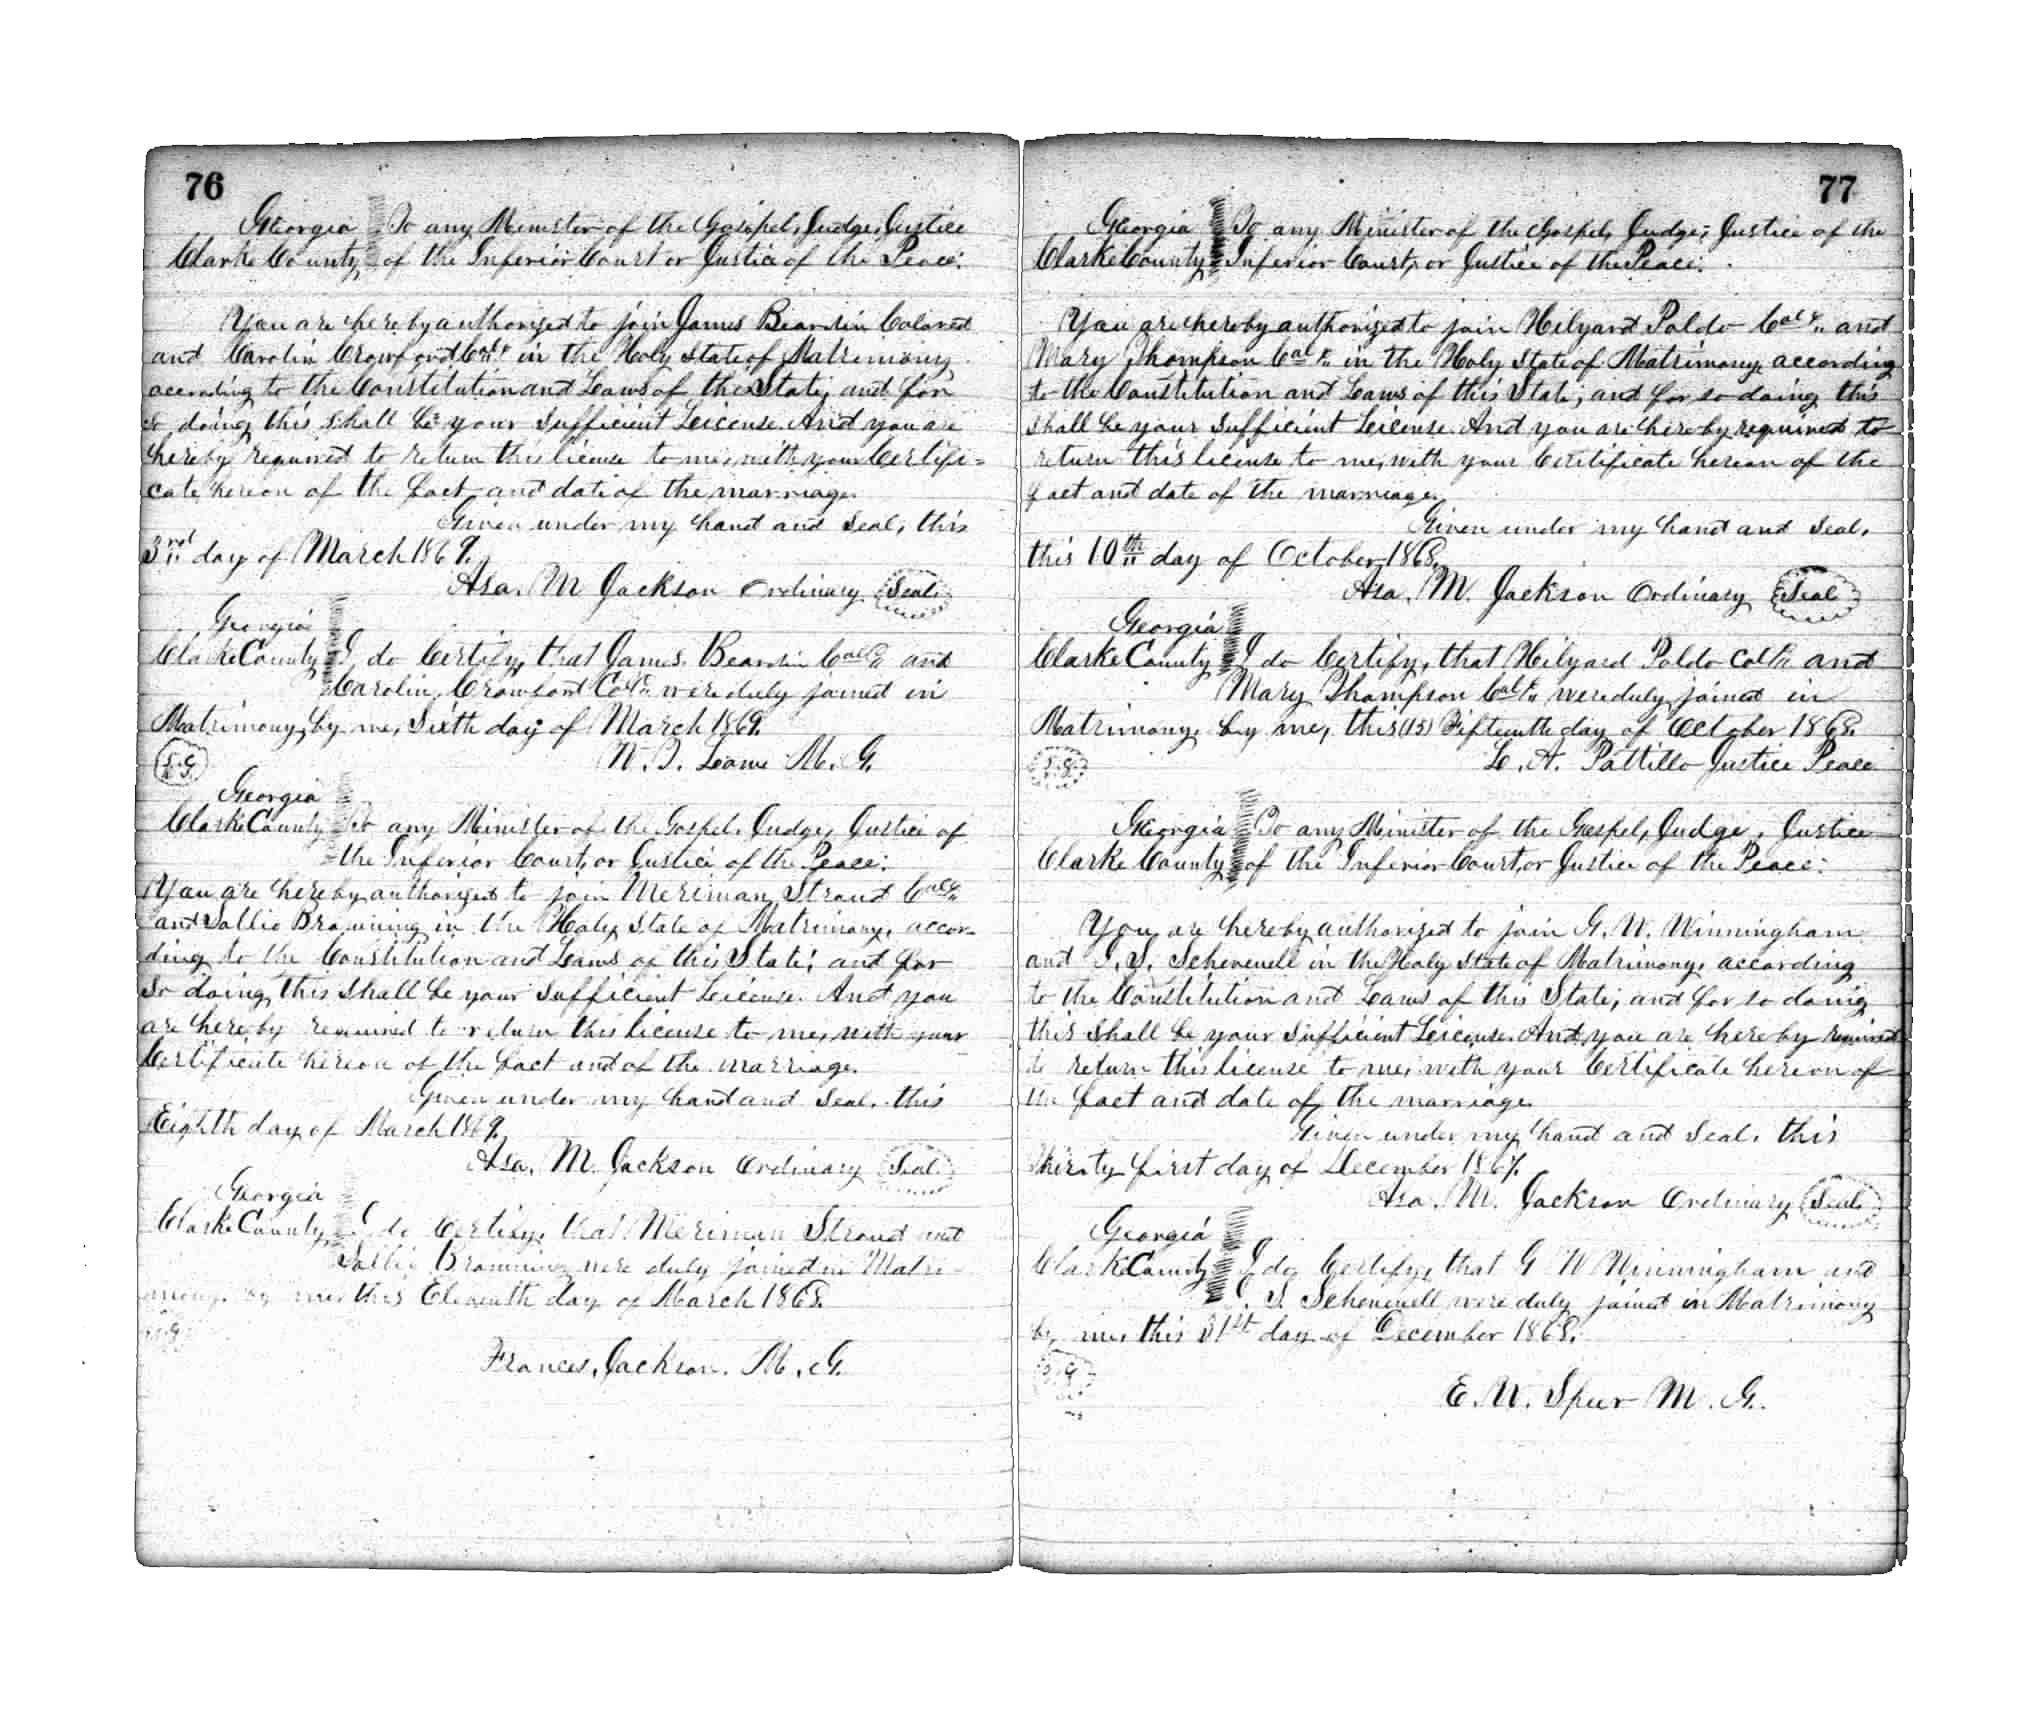 76
Georgia To any Minister of the Gospel, Judge, Justice
Clarke County of the Inferior Court or Justice of the Peace:
You are hereby authorized to join James Beardin Colored
and Carolin Crawford Cold in the Holy State of Matrimony
according to the Constitution and Laws of the State; and for
so doing this shall be your sufficient Leicense. And you are
hereby required to return this license to me, with your Certifi=
cate hereon of the fact and date of the marriage.
Given under my hand and seal, this
3rd day of March 1869.
Asa. M Jackson Ordinary Seal
Georgia
Clarke County I, do Certify, that James Beardin Cold and
Carolin Crawford Cold were duly joined in
Matrimony, by me, Sixth day of March 1869.
W. T. M. G.
Georgia
Clarke County To any Minister of the Gospel, Judge, Justice of
the Inferior Court, or Justice of the Peace:
You are hereby authorized to join Meriman Stroud Cold
and Sallie Browning in the Holy State of Matrimony, accor-
ding to the Constitution and Laws of this State; and for
So doing, this shall be your sufficient Leicense. And you
are hereby required to return this license to me, with your
Certificate hereon of the fact and of the marriage.
Given under my hand and seal, this
Eighth day of March 1869.
Asa. M. Jackson Ordinary Seal
Georgia
Clarke County I do Certify, that Meriman Stroud and
Sallie Browning were duly joined in Matri-
mony, by me, this Eleventh day of March 1868.
Frances. Jackson. M. G.
77
Georgia To any Minister of the Gospel, Judge, Justice of the
Clarke County Inferior Court, or Justice of the Peace:
You are hereby authorized to join Hilyard Poldo Cold and
Mary Thompson Cold in the Holy State of Matrimony, according
to the Constitution and Laws of this State; and for so doing this
shall be your sufficient Leicense. And you are hereby required to
return this license to me, with your Certificate hereon of the
fact and date of the marriage,
Given under my hand and seal,
this 10th day of October 1868.
Asa. M. Jackson Ordinary Seal
Georgia
Clarke County I do Certify, that Hilyard Poldo Cold and
Mary Thompson Cold were duly joined in
Matrimony, by me, this (15) Fifteenth day of October 1868.
L. A. Pattillo Justice Peace
Georgia To any Minister of the Gospel, Judge, Justice
Clarke County of the Inferior Court, or Justice of the Peace:
You are hereby authorized to join G. W. Winningham
and S. Schevenell in the Holy State of Matrimony, according
to the Constitution and Laws of this State; and for so doing
this shall be your sufficient Leicense. And you are hereby required
to return this license to me, with your Certificate hereon of
the fact and date of the marriage
Given under my hand and seal, this
Thirty first day of December 1867.
Asa. M. Jackson Ordinary Seal
Georgia
Clarke County I do Certify, that G W Winningham and
S. Schevenell were duly joined in Matrimony
by me, this 31st day of December 1868.
E. W. Speer M. G.